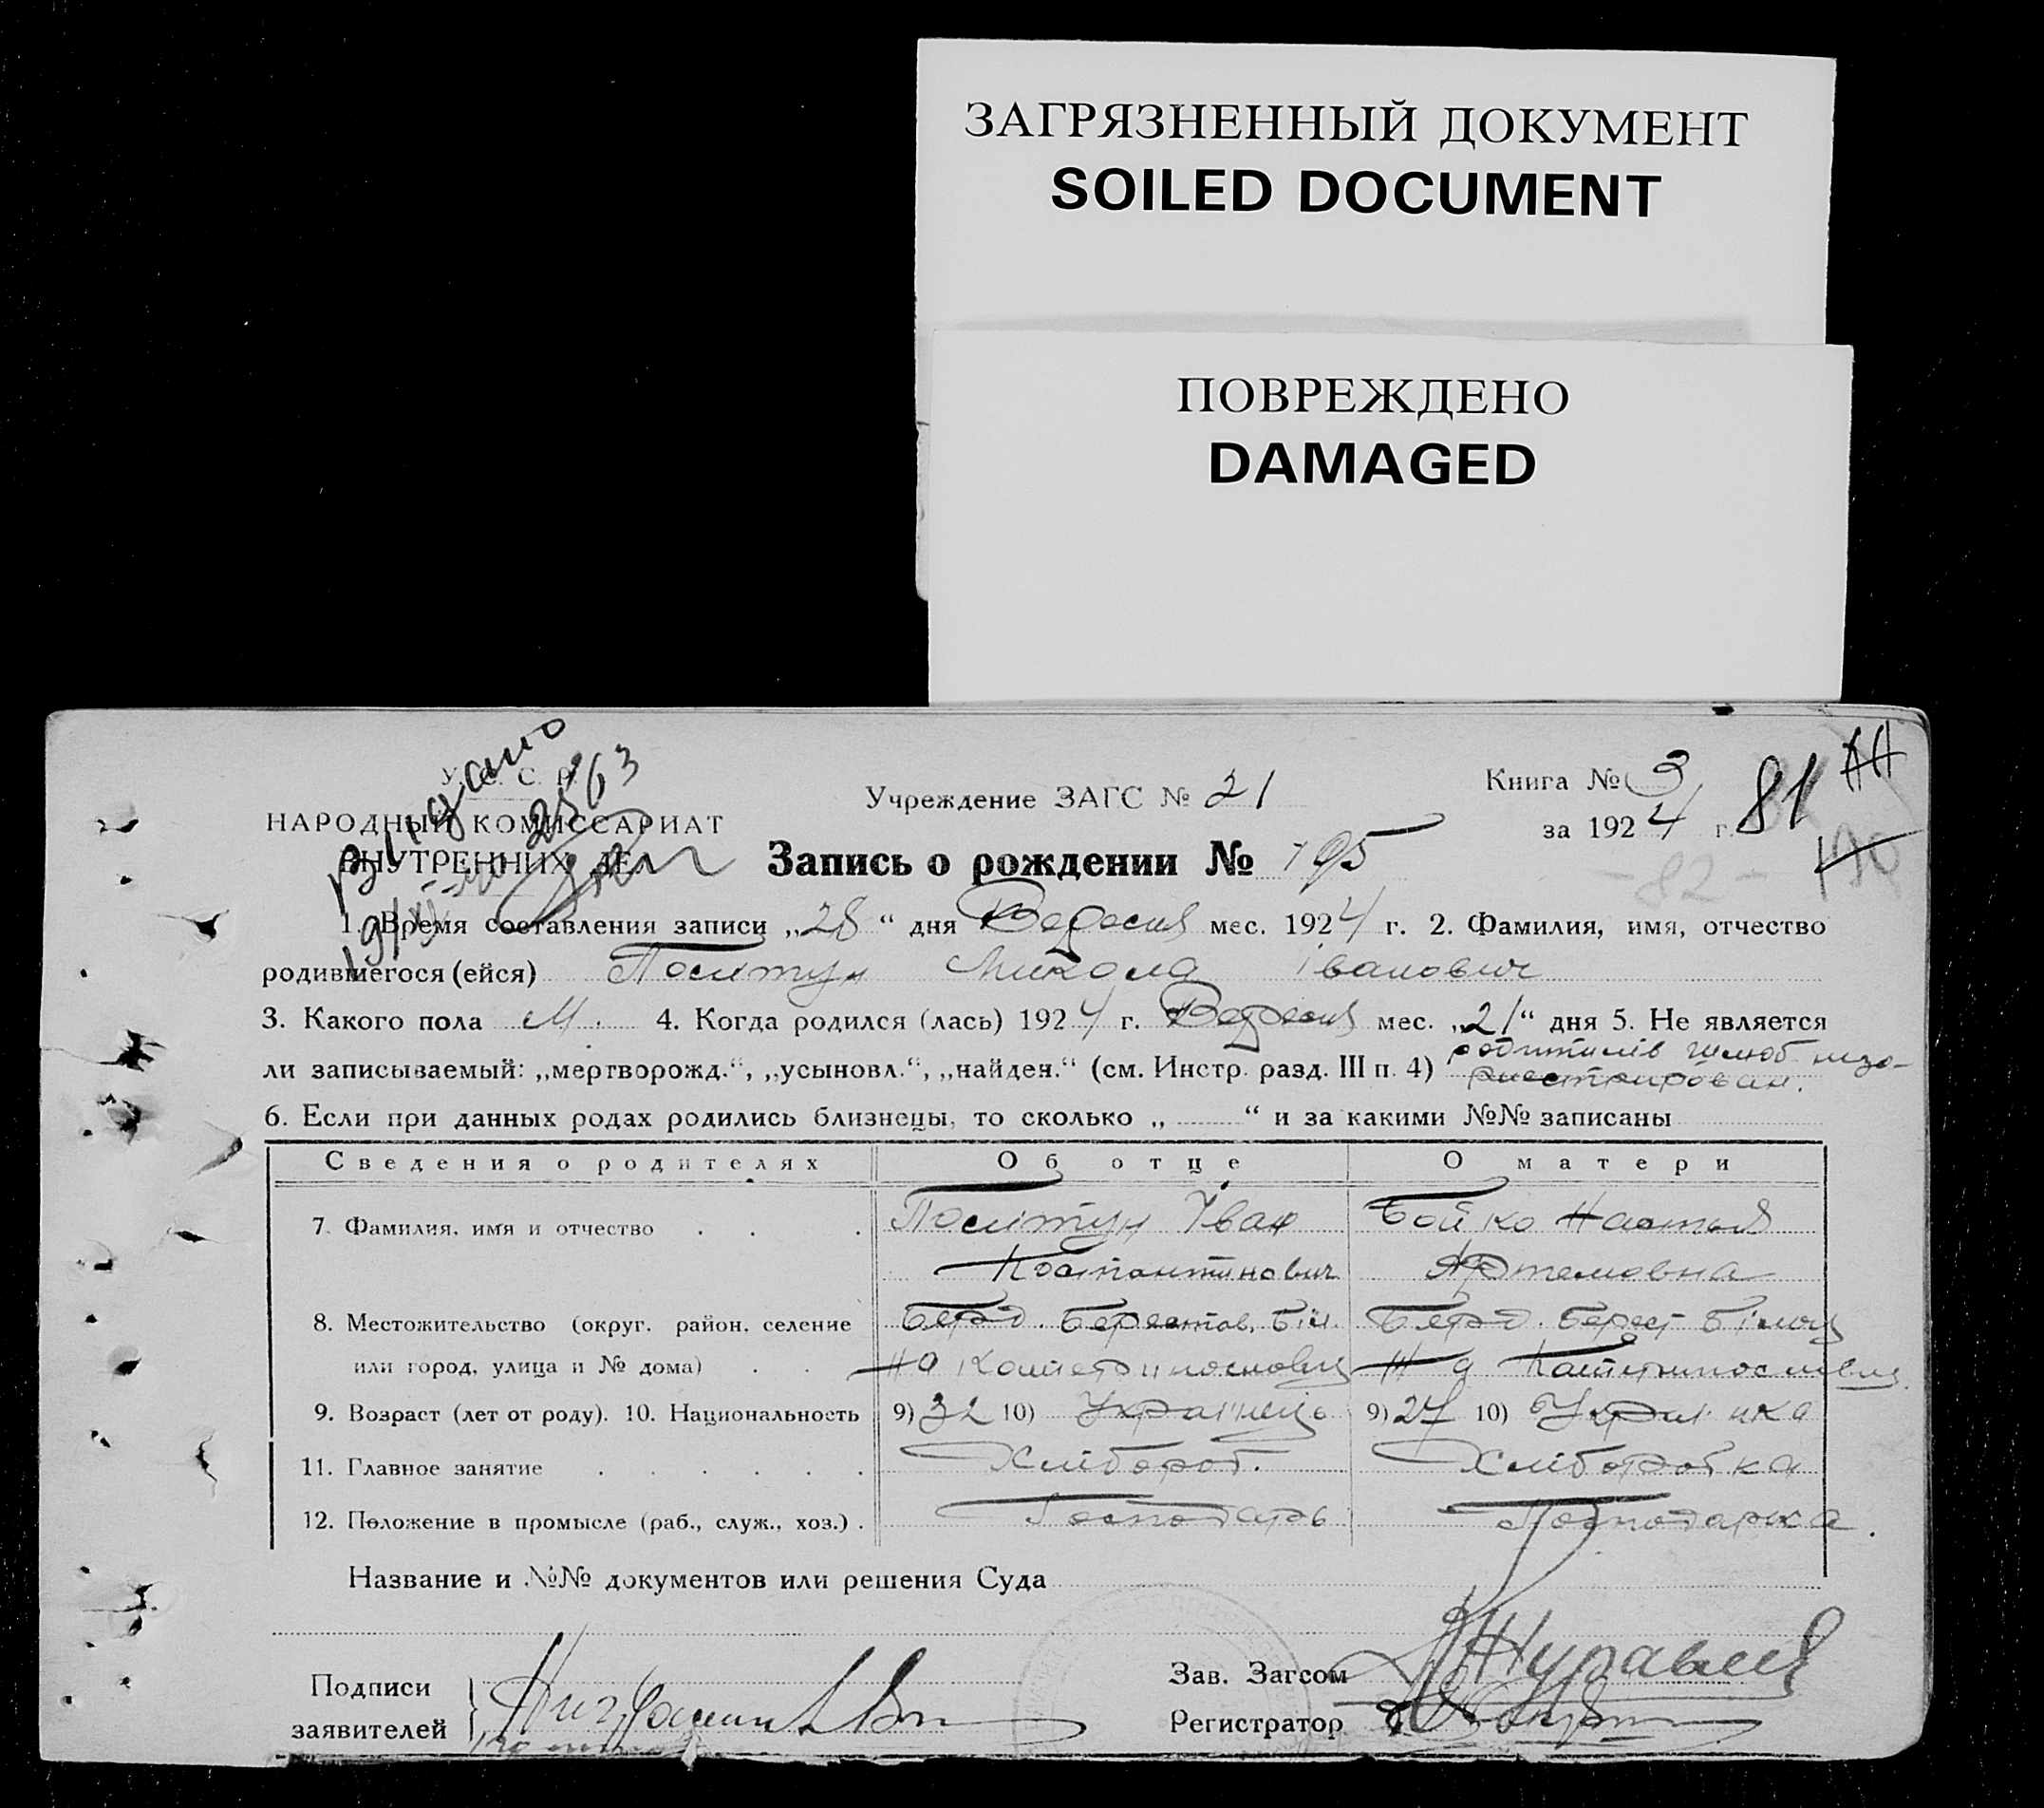 ЗАГРЯЗНЕННЫЙ ДОКУМЕНТ
SOILED DOCUMENT
ПОВРЕЖДЕНО
DAMAGED
У. С. С. Р.
НАРОДНЫЙ КОМИССАРИАТ
ВНУТРЕННИХ ДЕЛ
Видано
2563
Учреждение ЗАГС № 21
Книга № 3
за 1924 г. 81
Запись о рождении № 195
- 82 -
1. Время составления записи „28“ дня Вересня мес. 1924 г. 2. Фамилия, имя, отчество
родившегося (ейся) Посітун Микола Іванович
3. Какого пола М. 4. Когда родился (лась) 1924 г. Вересня мес. „21“ дня 5. Не является
ли записываемый: „мертворожд.“, „усыновл.“, „найден.“ (см. Инстр. разд. III п. 4) родителів шлюб
6. Если при данных родах родились близнецы, то сколько „ “ и за какими №№ записаны
Сведения о родителях Об отце О матери
7. Фамилия, имя и отчество Посітун Іван Бойко Настя
Костантинович Артемовна
8. Местожительство (округ. район. селение Берд. Берестов. Біл. Берд. Берест
или город, улица и № дома)
9. Возраст (лет от роду). 10. Национальность 9) 32 10) Українець 9) 27 10) Українка
11. Главное занятие Хлібороб. Хліборобка
12. Положение в промысле (раб., служ., хоз.) Господарь Господарка.
Название и №№ документов или решения Суда
Подписи
заявителей
Зав. Загсом
Регистратор